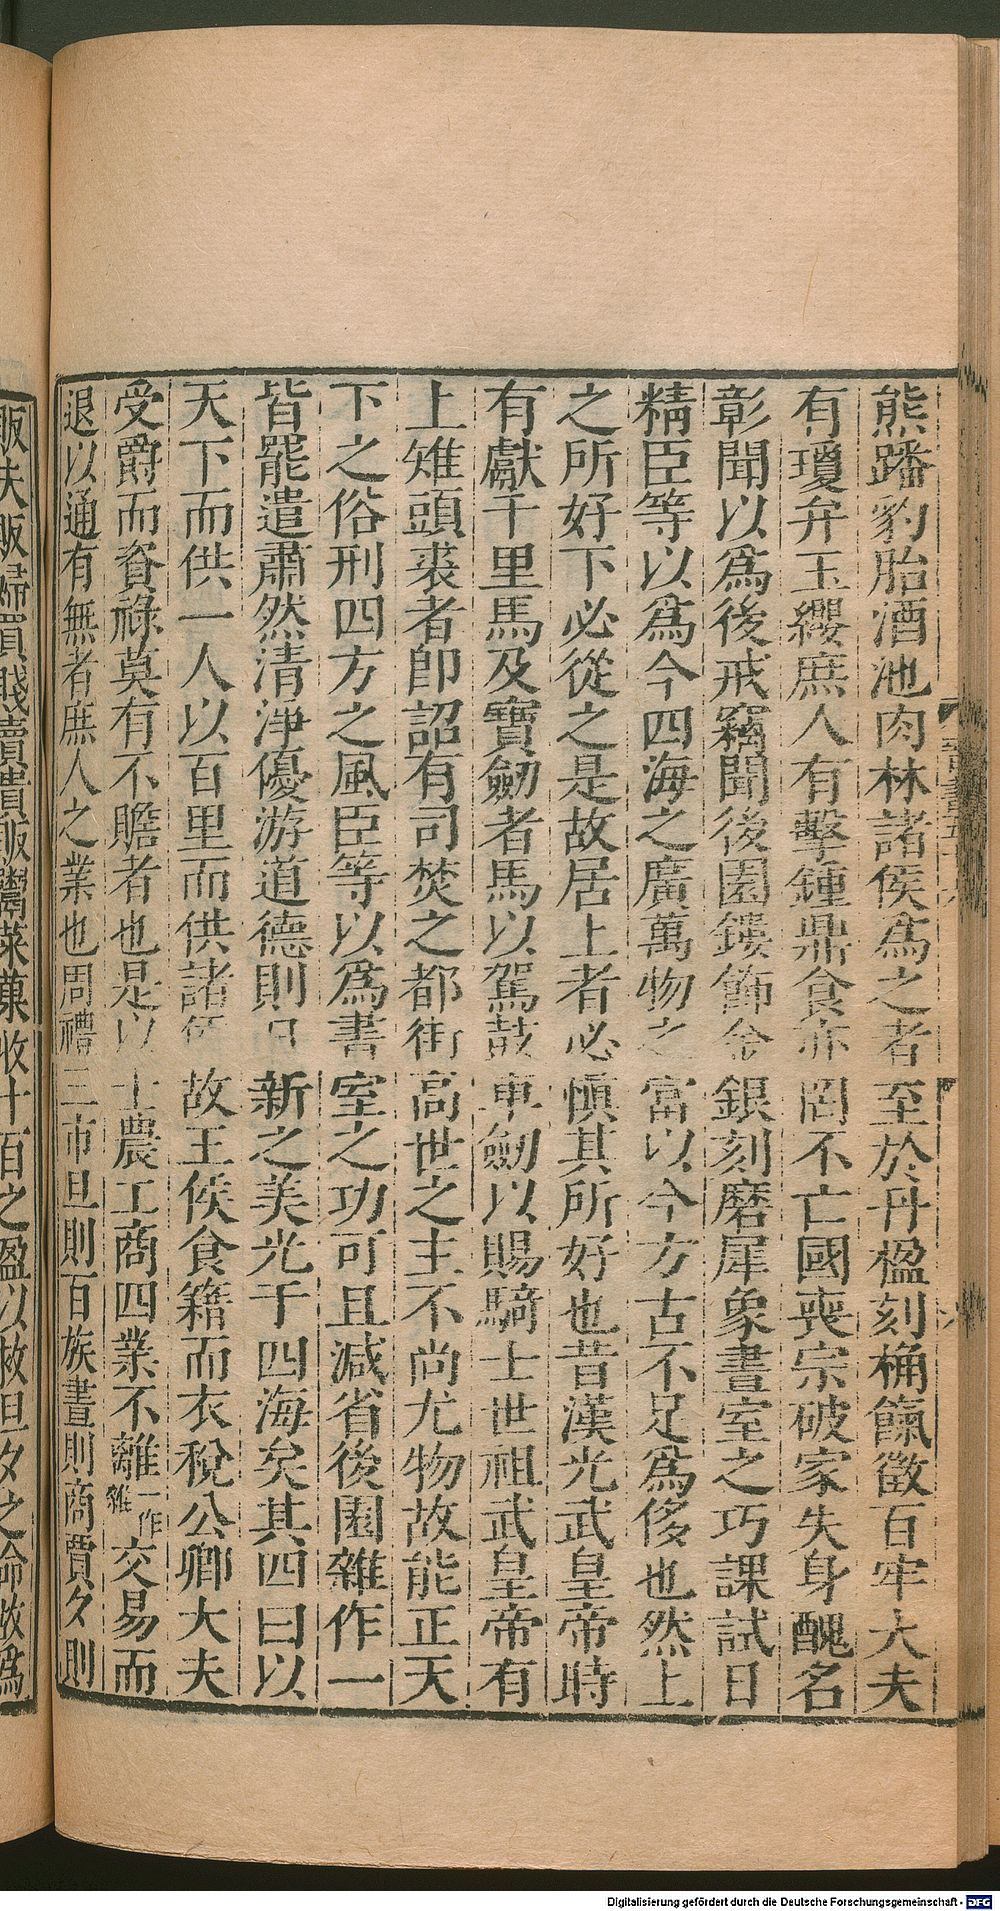 熊蹯豹胎酒池肉林諸侯為之者至於丹楹刻桷餼徵百牢大夫
有瓊弁玉纓庶人有擊鍾鼎食亦罔不亡國喪宗破家失身醜名
彰聞以為後戒竊聞後園鏤飾金銀刻磨犀象畫室之巧課試日
精臣等以為今四海之廣萬物之富以今方古不足為侈也然上
之所好下必從之是故居上者必慎其所好也昔漢光武皇帝時
有獻千里馬及寶劒者馬以駕鼓車劒以賜騎士世祖武皇帝有
上雉頭裘者即詔有司焚之都街高世之主不尚尤物故能正天
下之俗刑四方之風臣等以為畫室之功可且減省後園雜作一
皆罷遣肅然清淨優游道德則日新之美光于四海矣其四曰以
天下而供一人以百里而供諸侯故王侯食籍而衣稅公卿大夫
受爵而資祿莫有不贍者也是以士農工商四業不離一作雜交易而
退以通有無者庶人之業也周禮三市旦則百族晝則商賈夕則
販夫販婦買賤賣貴販鬻菜菓收十百之盈以救旦夕之命故為
Digitalisierung gefördert durch die Deutsche Forschungsgemeinschaft - DFG